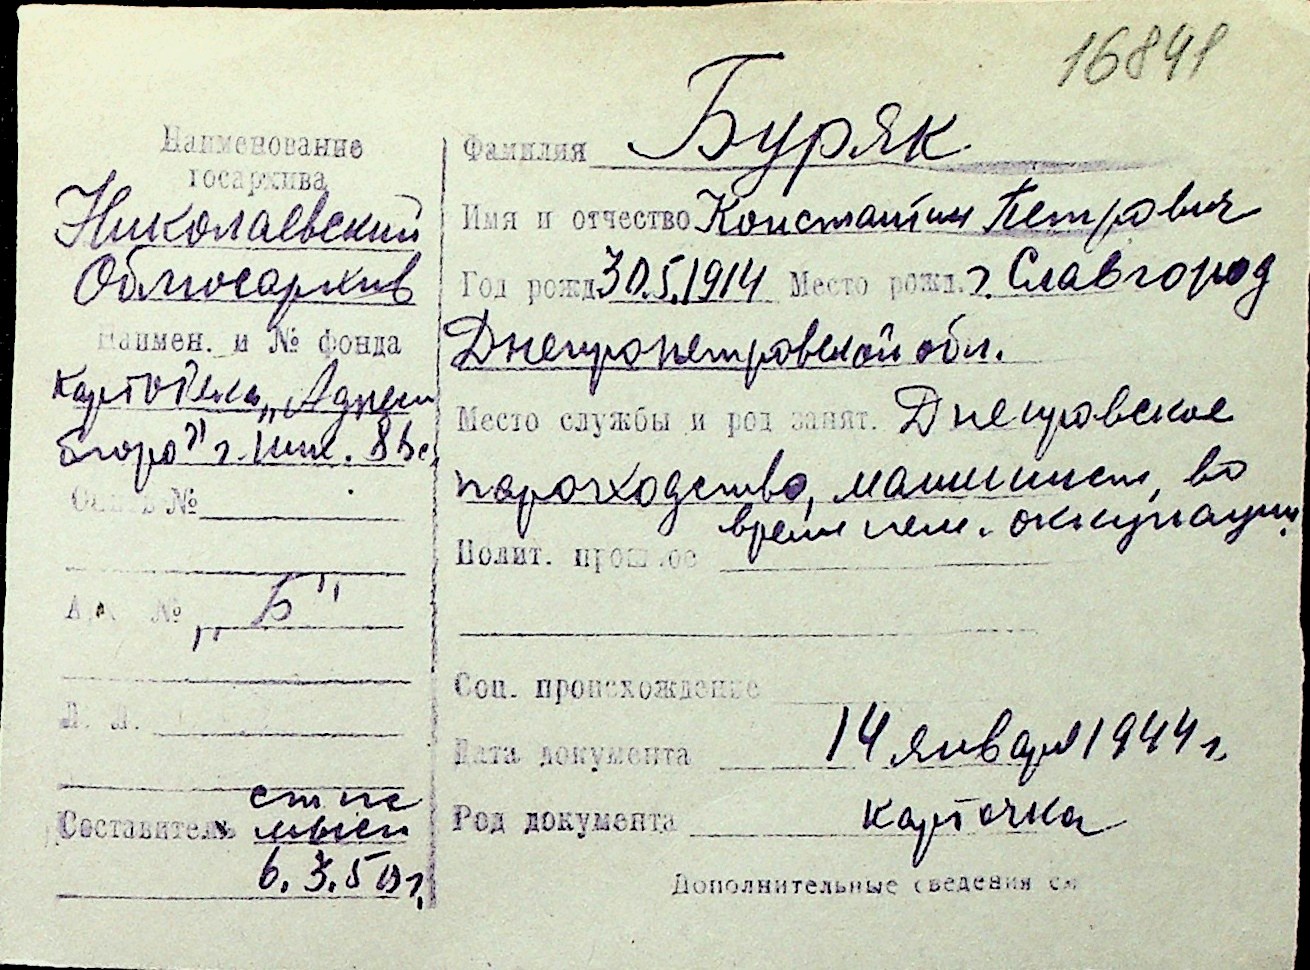 16841
Наименование
госархива
Николаевский
Облгосархив
Наимен. и № фонда
Картотека „Адресн
бюро" г. Ник.
Опись №
„Б"
Л. Л.
Составитель
6.3.50 г.
Фамилия Буряк
Имя и отчество Константин Петрович
Год рожд. 30.5.1914 Место рожд. г. Славгород
Днепропетровской обл.
Место службы и род занят. Днепровское
пароходство, машинист, во
время нем. оккупации.
Полит. прошлое
Соц. происхождение
Дата документа 14 января 1944 г.
Род документа карточка
Дополнительные сведения см